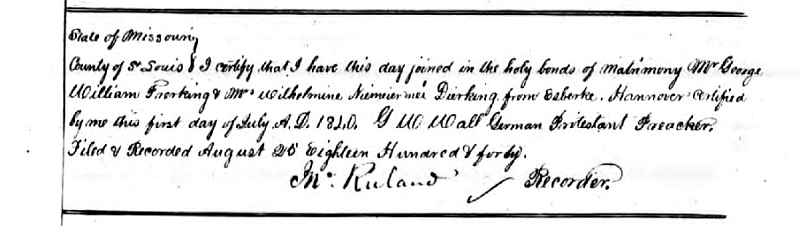 State of Missouri
County of St Louis } I certify that I have this day joined in the holy bonds of matrimony Mr George
William Frorking & Mrs Wilhelmine Niemiermei Durking from Esberke. Hannover Certified
by me this first day of July A.D. 1840. G W Wall German Protestant Preacher.
Filed & Recorded August 25 Eighteen Hundred & forty.
Jno. Ruland Recorder.